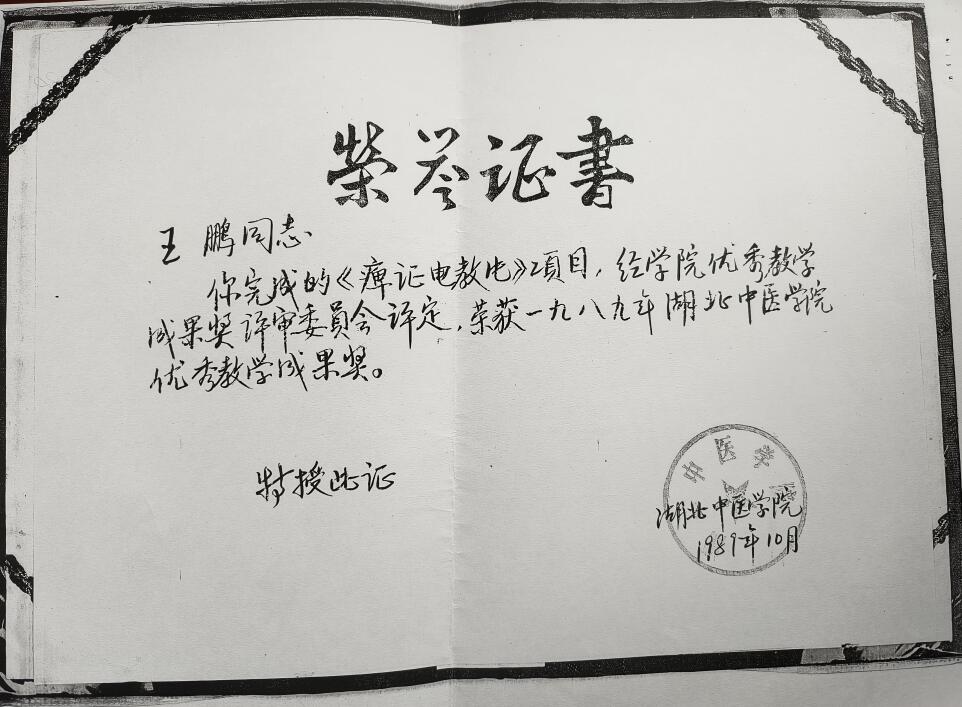 榮誉证書
王鹏同志
你完成的《痺证电教片》项目，经学院优秀教学
成果奖评审委員会评定，荣获一九八九年湖北中医学院
优秀教学成果奖。
特授此证
中医学
湖北中医学院
1989年10月